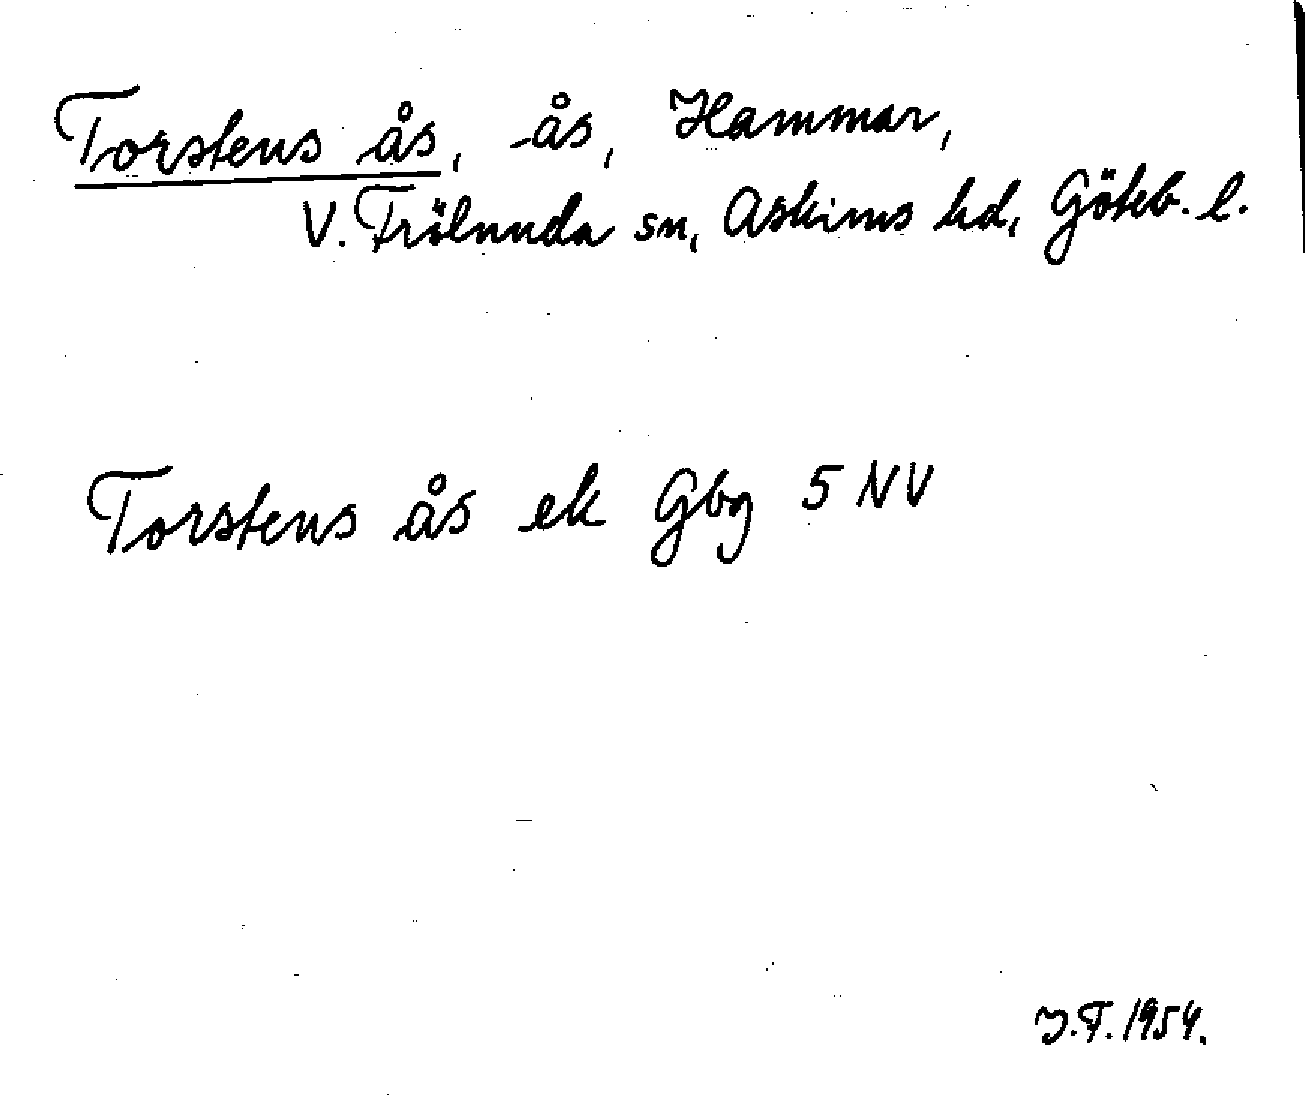 Torstens ås, -ås, Hammar,
V. Frölunda sn, Askims hd, Göteb. l.
Torstens ås ek Gbg 5 NV
J.F. 1954.